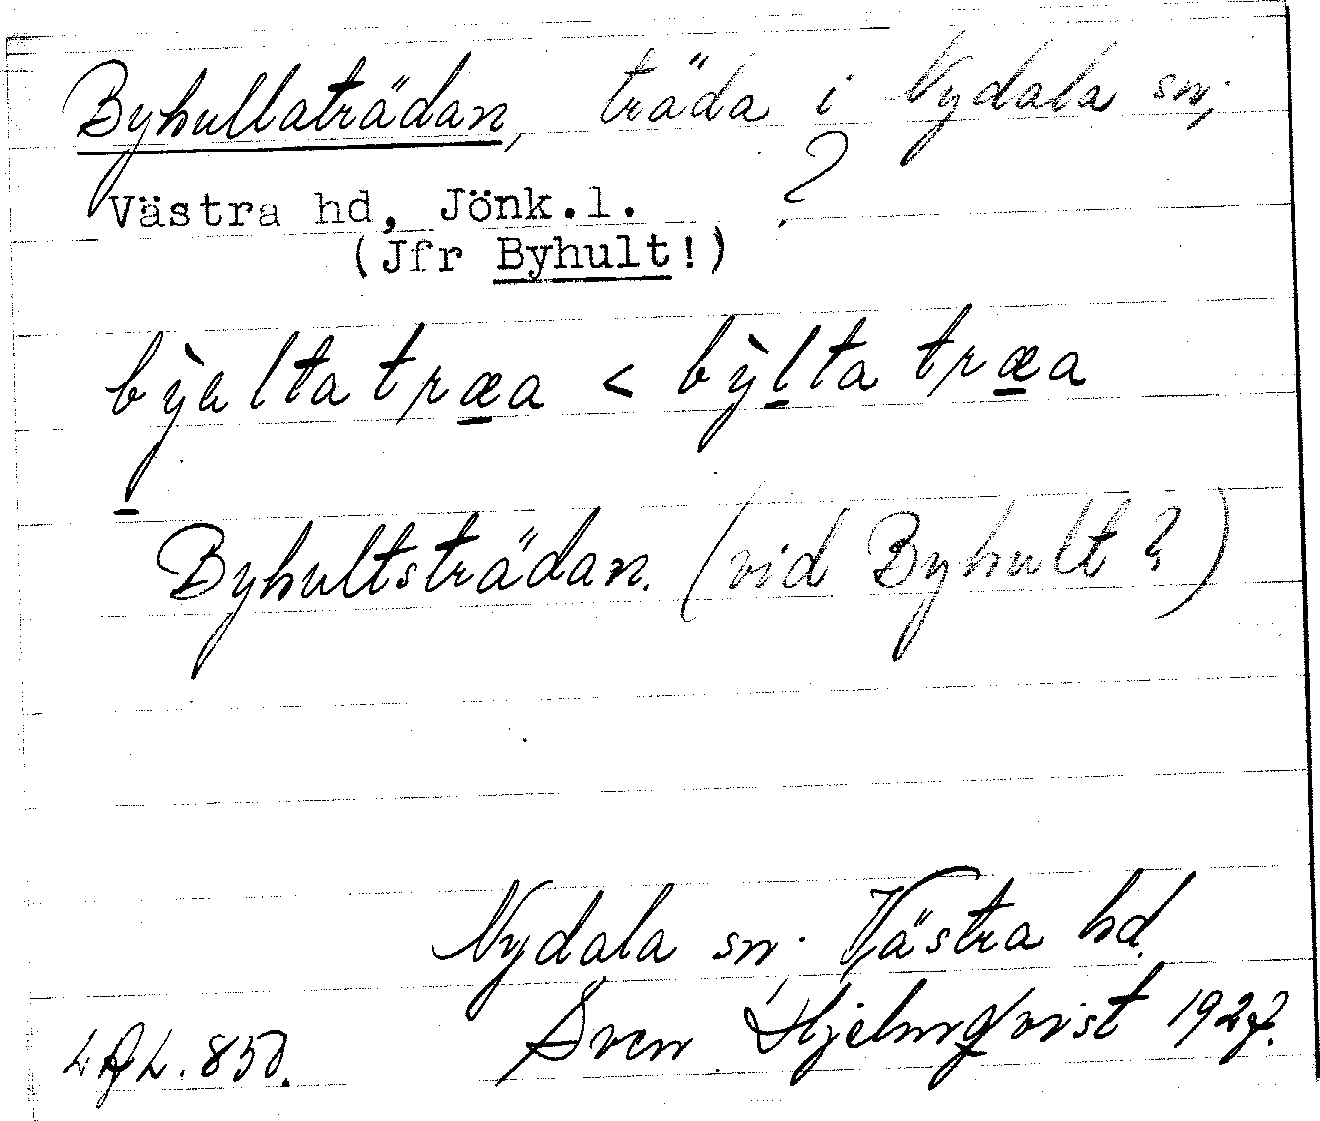 Byhultaträdan, träda i Nydala sn;
?
Västra hd, Jönk.l.
(Jfr Byhult!)
bỳalta træa < bỳlta træa
Byhultsträdan. (vid Byhult?)
Nydala sn. Västra hd.
Sven Hjelmqvist 1927.